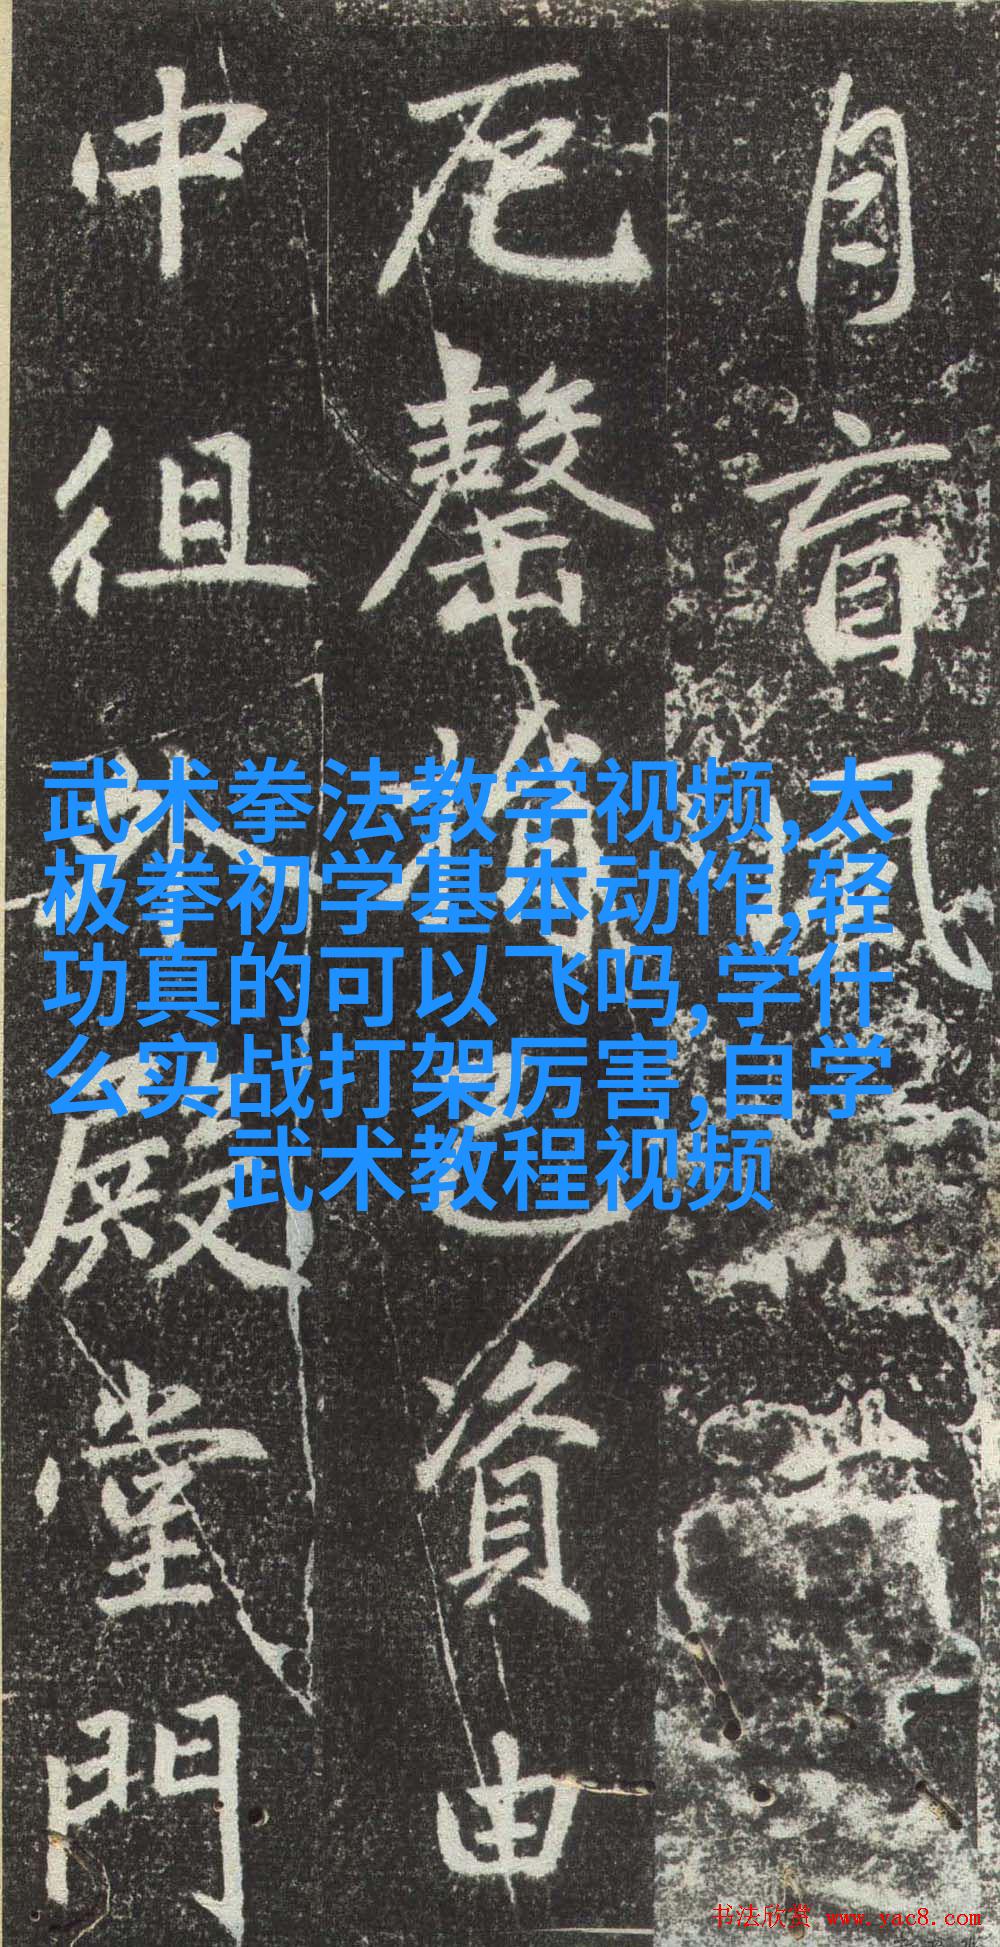 自盲風
厄罄捐己資由
中徂外殿堂門
武术拳法教学视频,太
极拳初学基本动作,轻
功真的可以飞吗,学什
么实战打架厉害,自学
武术教程视频
书法欣赏 www.yac8.com